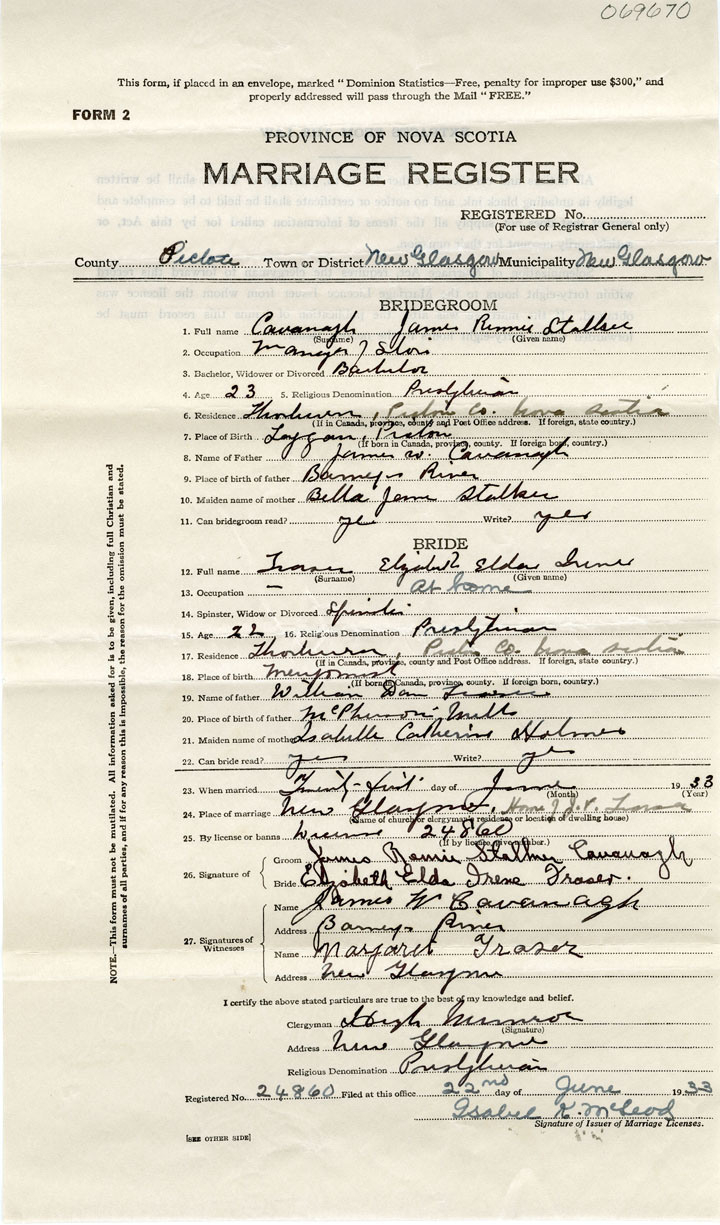 069670
This form, if placed in an envelope, marked "Dominion Statistics—Free, penalty for improper use $300," and
properly addressed will pass through the Mail "FREE."
FORM 2
PROVINCE OF NOVA SCOTIA
MARRIAGE REGISTER
REGISTERED No.
(For use of Registrar General only)
County Pictou Town or District New Glasgow Municipality New Glasgow
BRIDEGROOM
1. Full name Cavanagh James Rennie Stalker
(Surname) (Given name)
2. Occupation Manager Store
3. Bachelor, Widower or Divorced Bachelor
4. Age 23 5. Religious Denomination Presbyterian
6. Residence Thorburn, Pictou Co. Nova Scotia
(If in Canada, province, county and Post Office address. If foreign, state country.)
7. Place of Birth Loggan, Pictou
(If born in Canada, province, county. If foreign born, country.)
8. Name of Father James W. Cavanagh
9. Place of birth of father Barneys River
10. Maiden name of mother Bella Jane Stalker
11. Can bridegroom read? yes Write? yes
BRIDE
12. Full name Fraser Elizabeth Elda Irene
(Surname) (Given name)
13. Occupation — at home
14. Spinster, Widow or Divorced Spinster
15. Age 22 16. Religious Denomination Presbyterian
17. Residence Thorburn, Pictou Co. Nova Scotia
(If in Canada, province, county and Post Office address. If foreign, state country.)
18. Place of birth
(If born in Canada, province, county. If foreign born, country.)
19. Name of father William Dan Fraser
20. Place of birth of father McPhersons Mills
21. Maiden name of mother Isabelle Catherine Holmes
22. Can bride read? yes Write? yes
23. When married Twenty-first day of June 1933
(Month) (Year)
24. Place of marriage New Glasgow, Home of J. F. Fraser
(Name of church or clergyman's residence or location of dwelling house)
25. By license or banns License 24860
(If by license give number.)
26. Signature of Groom James Rennie Stalker Cavanagh
Bride Elizabeth Elda Irene Fraser.
27. Signatures of Witnesses
Name James W Cavanagh
Address Barneys River
Name Margaret Fraser
Address New Glasgow
I certify the above stated particulars are true to the best of my knowledge and belief.
Clergyman Hugh Munroe
(Signature)
Address New Glasgow
Religious Denomination Presbyterian
Registered No. 24860 Filed at this office 22nd day of June 1933
Isabel K. McLeod
Signature of Issuer of Marriage Licenses.
[SEE OTHER SIDE]
NOTE.—This form must not be mutilated. All information asked for is to be given, including full Christian and
surnames of all parties, and if for any reason this is impossible, the reason for the omission must be stated.